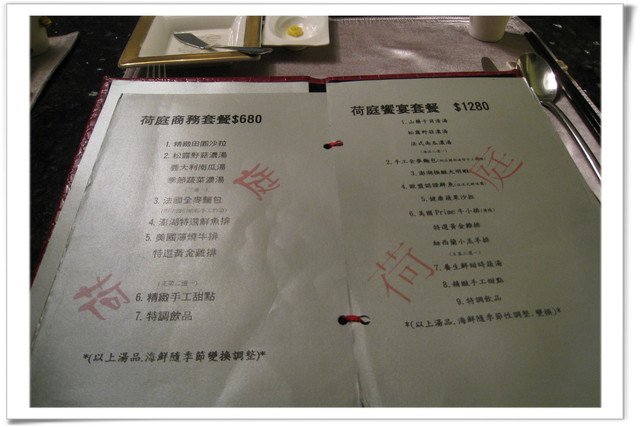 荷庭商務套餐$680
1. 精緻田園沙拉
2. 松露野菇濃湯
義大利南瓜湯
季節蔬菜濃湯
(三選一)
3. 法國全麥麵包
4. 澎湖特選鮮魚排
5. 美國薄燒牛排
特選黃金雞排
(主菜二選一)
6. 精緻手工甜點
7. 特調飲品
*(以上湯品,海鮮隨季節變換調整)*
荷
庭
荷庭饗宴套餐 $1280
1. 山藥干貝清湯
松露野菇濃湯
法式南瓜濃湯
2. 手工全麥麵包
5. 健康蔬果沙拉
6. 美國Prime牛小排
特選黃金雞排
紐西蘭小羔羊排
7. 養生鮮甜時蔬湯
8. 精緻手工甜點
9. 特調飲品
*(以上湯品,海鮮隨季節性調整,變換)*
荷
庭